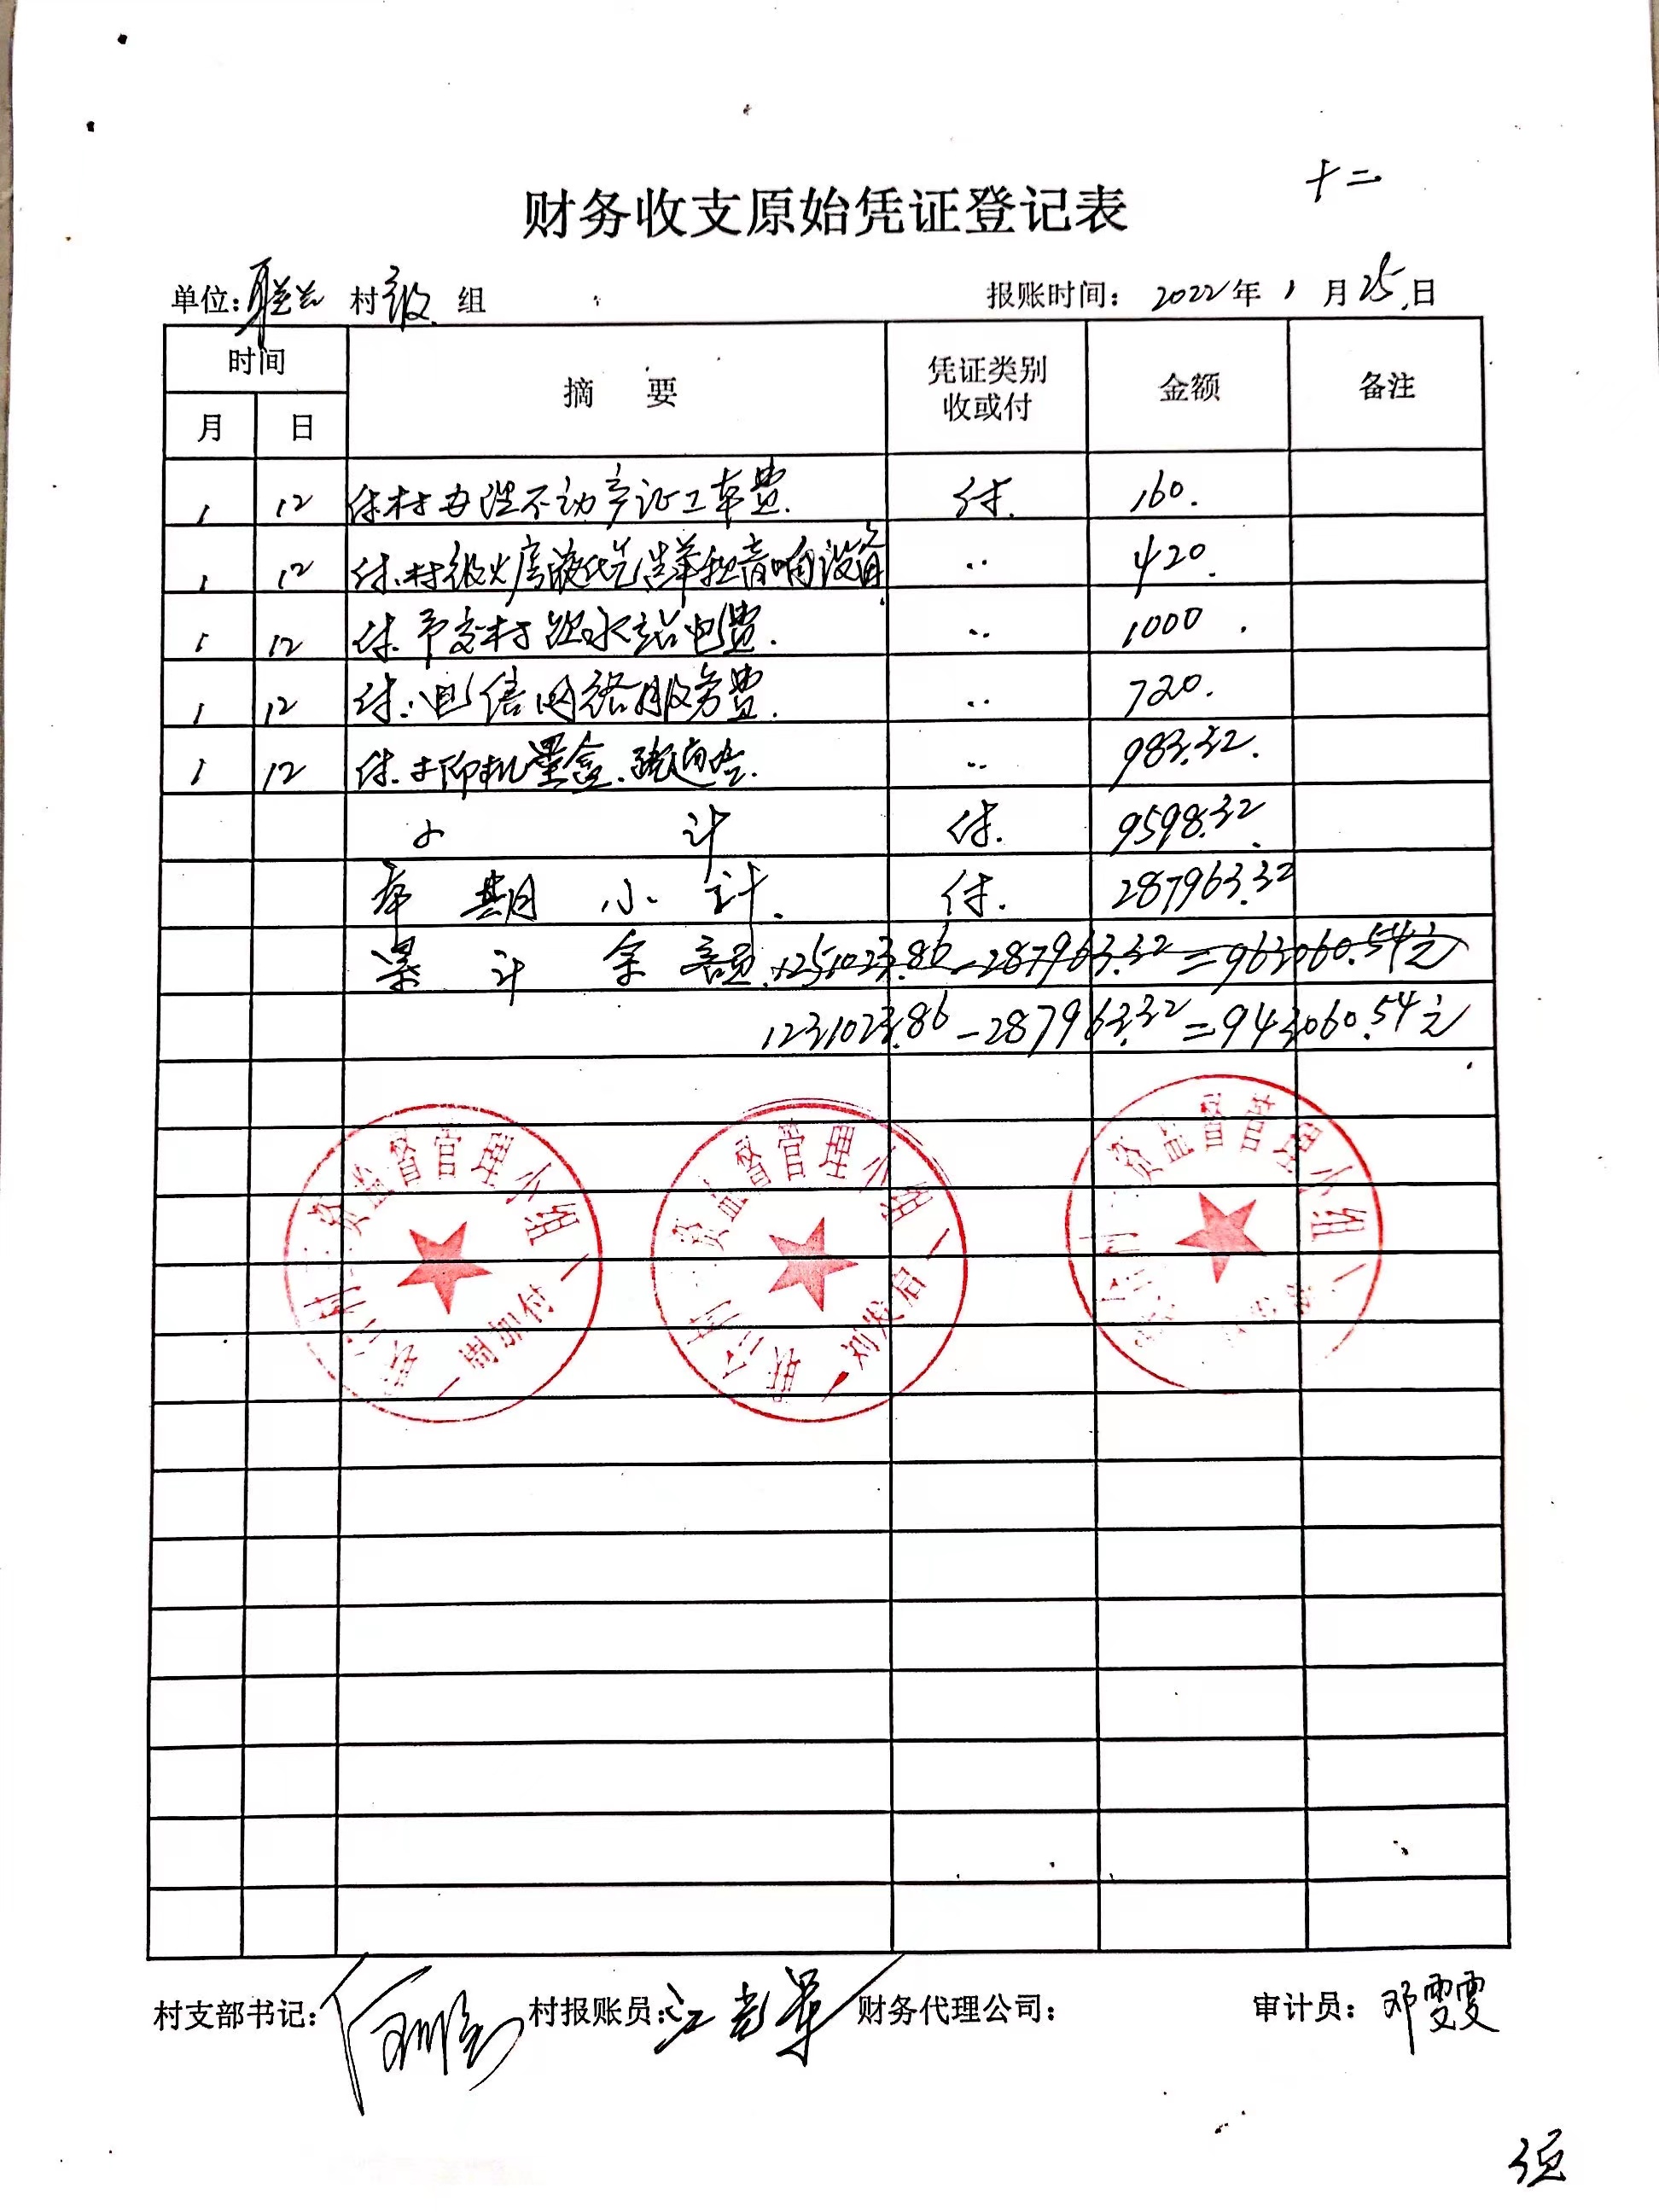 十二
财务收支原始凭证登记表
单位: 联合 村 级 组 报账时间: 2022年 1 月 25 日
时间 摘 要 凭证类别 收或付 金额 备注
月 日
1 12 付村办理不动产证工本费. 付. 160.
1 12 付.村级火房液化气 音响设备 〃 420.
1 12 付.预交村 水站电费. 〃 1000.
1 12 付.电信网络服务费. 〃 720.
1 12 付.打印机墨盒. 〃 983.32.
小 计 付. 9598.32.
本 期 小 计. 付. 287963.32
累 计 余 额. 1251023.86-287963.32=963060.54元
1231023.86-287963.32=943060.54元
联合村 资监督管理小组
周加付
联合村 资监督管理小组
刘发启
资监督管理小组
村支部书记: 村报账员: 江 军 财务代理公司: 审计员: 邓雯雯